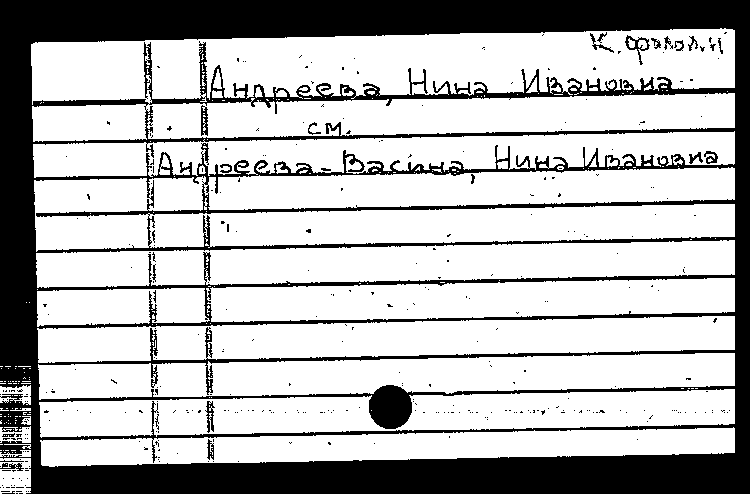 К. филол. н
Андреева, Нина Ивановна
см.
Андреева-Васина, Нина Ивановна